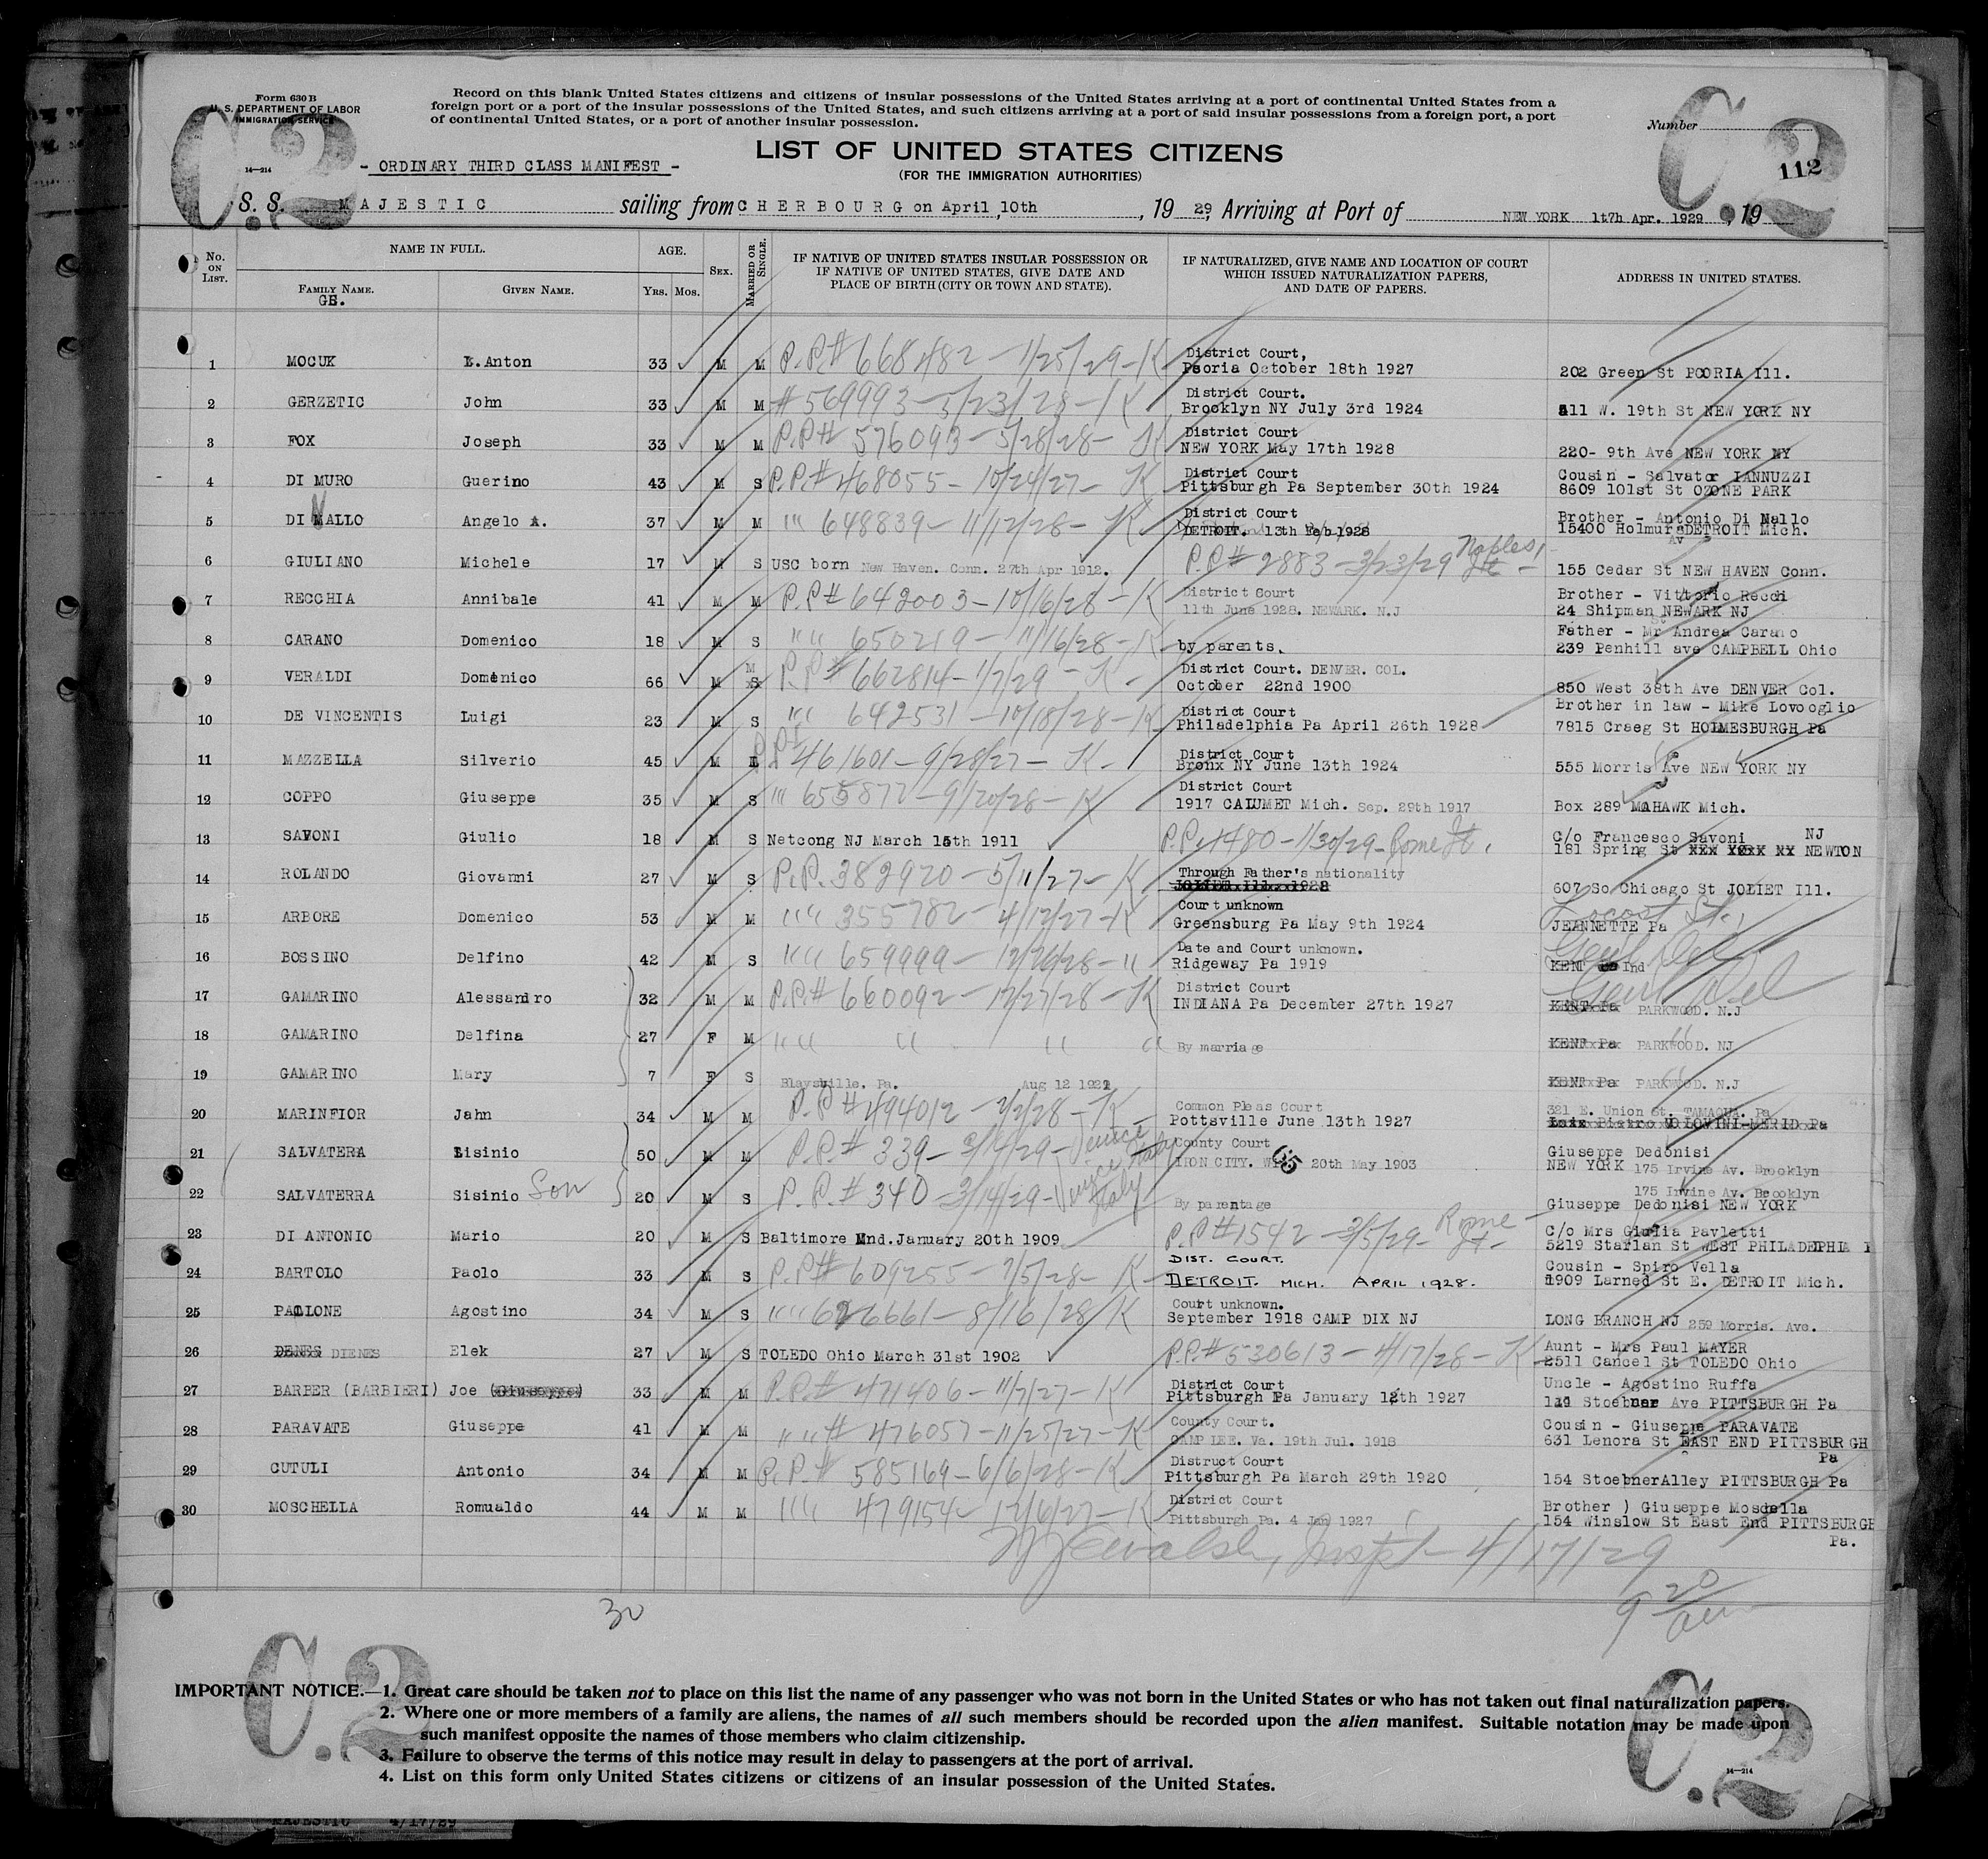 Form 630 B
U. S. DEPARTMENT OF LABOR
IMMIGRATION SERVICE
14—214
C.2
Record on this blank United States citizens and citizens of insular possessions of the United States arriving at a port of continental United States from a
foreign port or a port of the insular possessions of the United States, and such citizens arriving at a port of said insular possessions from a foreign port, a port
of continental United States, or a port of another insular possession.
C.2
Number
112
LIST OF UNITED STATES CITIZENS
(FOR THE IMMIGRATION AUTHORITIES)
- ORDINARY THIRD CLASS MANIFEST -
S. S. MAJESTIC sailing from CHERBOURG on April, 10th, 19 29, Arriving at Port of NEW YORK 1t7h Apr. 1929, 19
No. ON LIST. NAME IN FULL. AGE. SEX. MARRIED OR SINGLE. IF NATIVE OF UNITED STATES INSULAR POSSESSION OR IF NATIVE OF UNITED STATES, GIVE DATE AND PLACE OF BIRTH (CITY OR TOWN AND STATE). IF NATURALIZED, GIVE NAME AND LOCATION OF COURT WHICH ISSUED NATURALIZATION PAPERS, AND DATE OF PAPERS. ADDRESS IN UNITED STATES.
FAMILY NAME. GIVEN NAME. Yrs. Mos.
1 MOCUK Anton 33 M M P.P# 668482 - 1/25/29 - K District Court, Peoria October 18th 1927 202 Green St POORIA Ill.
2 GERZETIC John 33 M M # 569993 - 5/23/28 - K District Court. Brooklyn NY July 3rd 1924 W. 19th St NEW YORK NY
3 FOX Joseph 33 M M P.P# 576093 - 5/28/28 - K District Court NEW YORK May 17th 1928 220- 9th Ave NEW YORK NY
4 DI MURO Guerino 43 M S P.P.# 468055 - 10/24/27 - K District Court Pittsburgh Pa September 30th 1924 Cousin - Salvator IANNUZZI 8609 101st St OZONE PARK
5 DI NALLO Angelo A. 37 M M "" 648839 - 11/12/28 - K District Court DETROIT. 13th Feb 1928 Brother - Antonio Di Nallo 15400 Holmur Av DETROIT Mich.
6 GIULIANO Michele 17 M S USC born New Haven. Conn. 27th Apr 1912. P.P.# 2883 - 3/23/29 Naples, It - 155 Cedar St NEW HAVEN Conn.
7 RECCHIA Annibale 41 M M P.P# 642003 - 10/16/28 - K District Court 11th June 1928. NEWARK. N.J Brother - Vittorio Recci 24 Shipman St NEWARK NJ
8 CARANO Domenico 18 M S "" 650219 - 11/16/28 - K by parents. Father - Mr Andrea Carano 239 Penhill ave CAMPBELL Ohio
9 VERALDI Domenico 66 M M P.P# 662814 - 1/7/29 - K - District Court. DENVER. COL. October 22nd 1900 850 West 38th Ave DENVER Col.
10 DE VINCENTIS Luigi 23 M S "" 642531 - 10/18/28 - K District Court Philadelphia Pa April 26th 1928 Brother in law - Mike Lovooglio 7815 Craeg St HOLMESBURGH Pa
11 MAZZELLA Silverio 45 M P.P# 461601 - 9/28/27 - K - District Court Bronx NY June 13th 1924 555 Morris Ave NEW YORK NY
12 COPPO Giuseppe 35 M S "" 655872 - 9/20/28 - K District Court 1917 CALUMET Mich. Sep. 29th 1917 Box 289 MOHAWK Mich.
13 SAVONI Giulio 18 M S Netcong NJ March 15th 1911 P.P. 1480 - 1/30/29 - Rome It. C/o Francesco Savoni NJ 181 Spring St NEWTON
14 ROLANDO Giovanni 27 M S P.P. 382920 - 5/11/27 - K Through Father's nationality JOLIET Ill. 1928 607 So Chicago St JOLIET Ill.
15 ARBORE Domenico 53 M M "" 355782 - 4/12/27 - K Court unknown Greensburg Pa May 9th 1924 Locost St., JEANNETTE Pa
16 BOSSINO Delfino 42 M S "" 659999 - 12/26/28 - " Date and Court unknown. Ridgeway Pa 1919 Genl Del KENT Ind
17 GAMARINO Alessandro 32 M M P.P.# 660092 - 12/27/28 - K District Court INDIANA Pa December 27th 1927 Genl Del KENT Pa PARKWOOD. N.J
18 GAMARINO Delfina 27 F M "" " " " By marriage KENT Pa PARKWOOD. NJ
19 GAMARINO Mary 7 F S Blaysville. Pa. Aug 12 1921 KENT Pa PARKWOOD. N.J
20 MARINFIOR Jahn 34 M M P.P # 494012 - 2/2/28 - K Common Pleas Court Pottsville June 13th 1927 321 E. Union St. TAMAQUA. Pa
21 SALVATERA Lisinio 50 M M P.P.# 339 - 3/14/29 - Venice Italy County Court IRON CITY. 20th May 1903 Giuseppe Dedonisi NEW YORK 175 Irvine Av. Brooklyn
22 SALVATERRA Sisinio Son 20 M S P.P.# 340 - 3/14/29 - Venice Italy By parentage 175 Irvine Av. Brooklyn Giuseppe Dedonisi NEW YORK
23 DI ANTONIO Mario 20 M S Baltimore Mnd. January 20th 1909 P.P# 1542 - 3/5/29 - Rome It - C/o Mrs Giulia Pavletti 5219 Starlan St WEST PHILADELPHIA
24 BARTOLO Paolo 33 M S P.P# 609255 - 7/5/28 - K - DIST. COURT. DETROIT. MICH. APRIL 1928. Cousin - Spiro Vella 1909 Larned St E. DETROIT Mich.
25 PALLONE Agostino 34 M S "" 626661 - 8/16/28 / K Court unknown. September 1918 CAMP DIX NJ LONG BRANCH NJ 259 Morris. Ave.
26 DENES DIENES Elek 27 M S TOLEDO Ohio March 31st 1902 P.P.# 530613 - 4/17/28 - K Aunt - Mrs Paul MAYER 2511 Cancel St TOLEDO Ohio
27 BARBER (BARBIERI) Joe (Giuseppe) 33 M M P.P.# 471406 - 11/7/27 - K District Court Pittsburgh Pa January 12th 1927 Uncle - Agostino Ruffa Stoebner Ave PITTSBURGH Pa
28 PARAVATE Giuseppe 41 M M "" # 476057 - 11/25/27 - K County Court. CAMP LEE. Va. 19th Jul. 1918 Cousin - Giuseppe PARAVATE 631 Lenora St EAST END PITTSBURGH Pa
29 CUTULI Antonio 34 M M P.P.# 585169 - 6/6/28 - K District Court Pittsburgh Pa March 29th 1920 154 Stoebner Alley PITTSBURGH Pa
30 MOSCHELLA Romualdo 44 M M "" 479154 - 12/6/27 - K District Court Pittsburgh Pa. 4 Jan 1927 Brother ) Giuseppe Moschella 154 Winslow St East End PITTSBURGH Pa.
Walsh, Inspt - 4/17/29
9 20 am
30
C.2
C.2
IMPORTANT NOTICE.—1. Great care should be taken not to place on this list the name of any passenger who was not born in the United States or who has not taken out final naturalization papers.
2. Where one or more members of a family are aliens, the names of all such members should be recorded upon the alien manifest. Suitable notation may be made upon
such manifest opposite the names of those members who claim citizenship.
3. Failure to observe the terms of this notice may result in delay to passengers at the port of arrival.
4. List on this form only United States citizens or citizens of an insular possession of the United States.
14—214
MAJESTIC 4/17/29